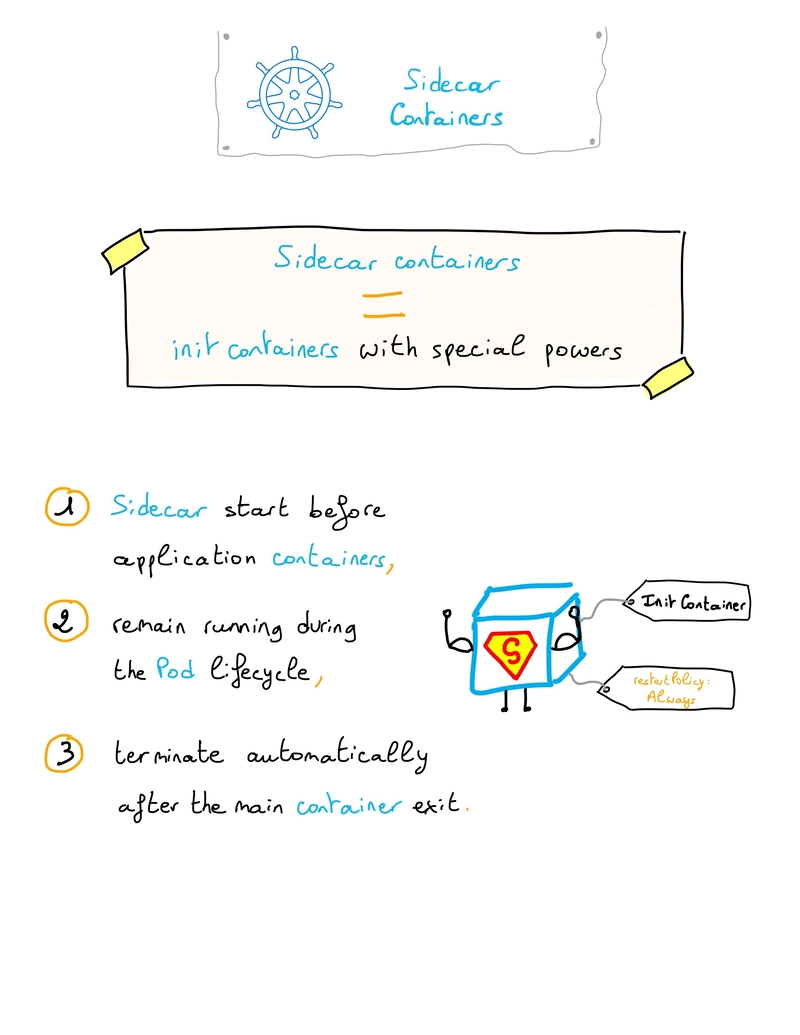 Sidecar
Containers
Sidecar containers
=
init containers with special powers
1 Sidecar start before
application containers,
2 remain running during
the Pod lifecycle,
S
Init Container
restartPolicy:
Always
3 terminate automatically
after the main container exit.